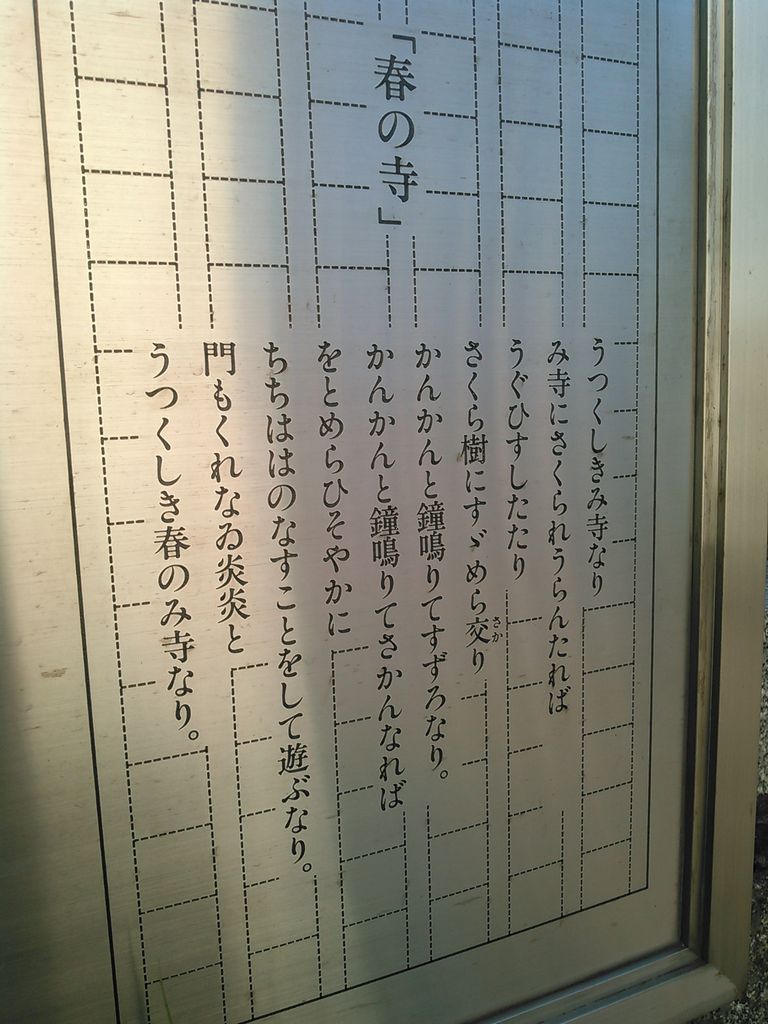 「春の寺」
うつくしきみ寺なり
み寺にさくられうらんたれば
うぐひすしたたり
さくら樹にすゞめら交り
さか
かんかんと鐘鳴りてすずろなり。
かんかんと鐘鳴りてさかんなれば
をとめらひそやかに
ちちははのなすことをして遊ぶなり。
門もくれなゐ炎炎と
うつくしき春のみ寺なり。